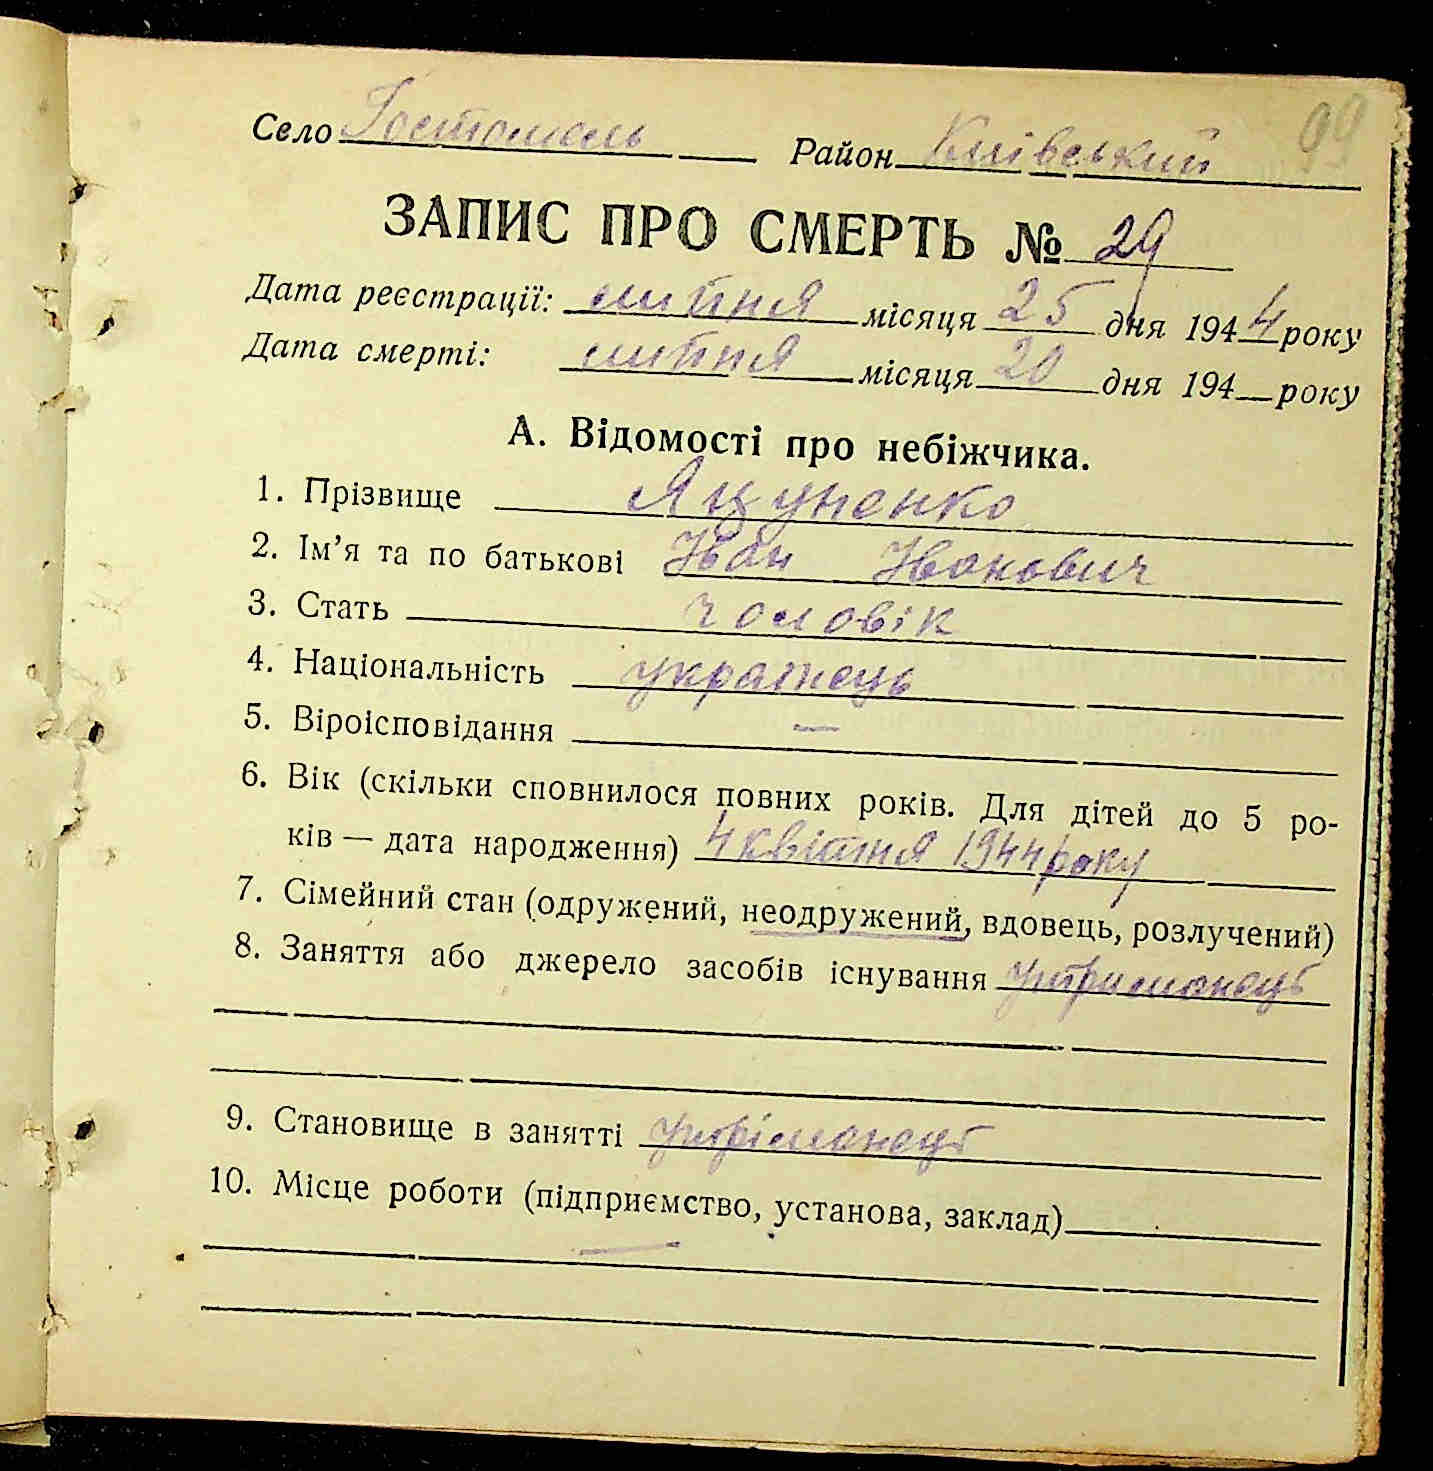 99
Село Гостомель Район Київський
ЗАПИС ПРО СМЕРТЬ № 29
Дата реєстрації: липня місяця 25 дня 1944 року
Дата смерті: липня місяця 20 дня 194 року
А. Відомості про небіжчика.
1. Прізвище Яцуненко
2. Ім’я та по батькові Іван Іванович
3. Стать чоловік
4. Національність українець
5. Віроісповідання —
6. Вік (скільки сповнилося повних років. Для дітей до 5 ро-
ків — дата народження) 4 квітня 1944 року
7. Сімейний стан (одружений, неодружений, вдовець, розлучений)
8. Заняття або джерело засобів існування утриманець
9. Становище в занятті утріманець
10. Місце роботи (підприємство, установа, заклад)
—